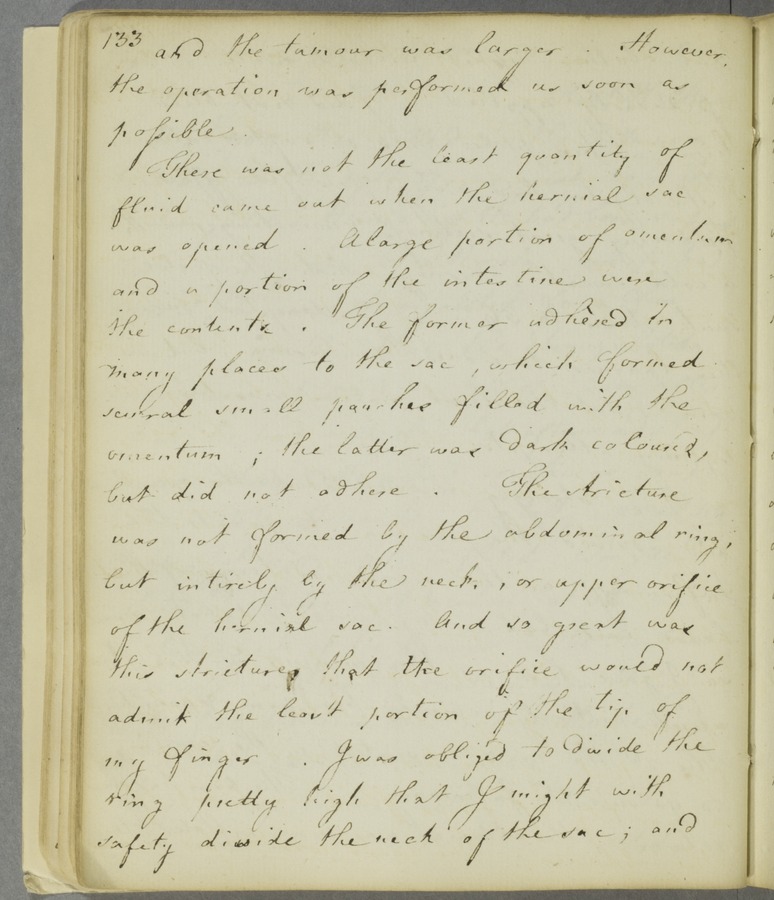 133 and the tumour was larger . However,
the operation was performed as soon as
possible .
There was not the least quantity of
fluid came out when the hernial sac
was opened . A large portion of omentum
and a portion of the intestine were
the contents . The former adhered in
many places to the sac , which formed
several small pouches filled with the
omentum ; the latter was dark coloured,
but did not adhere . The stricture
was not formed by the abdominal ring,
but intirely by the neck , or upper orifice
of the hernial sac . And so great was
this stricture, that the orifice would not
admit the least portion of the tip of
my finger . I was obliged to divide the
ring pretty high that I might with
safety divide the neck of the sac ; and